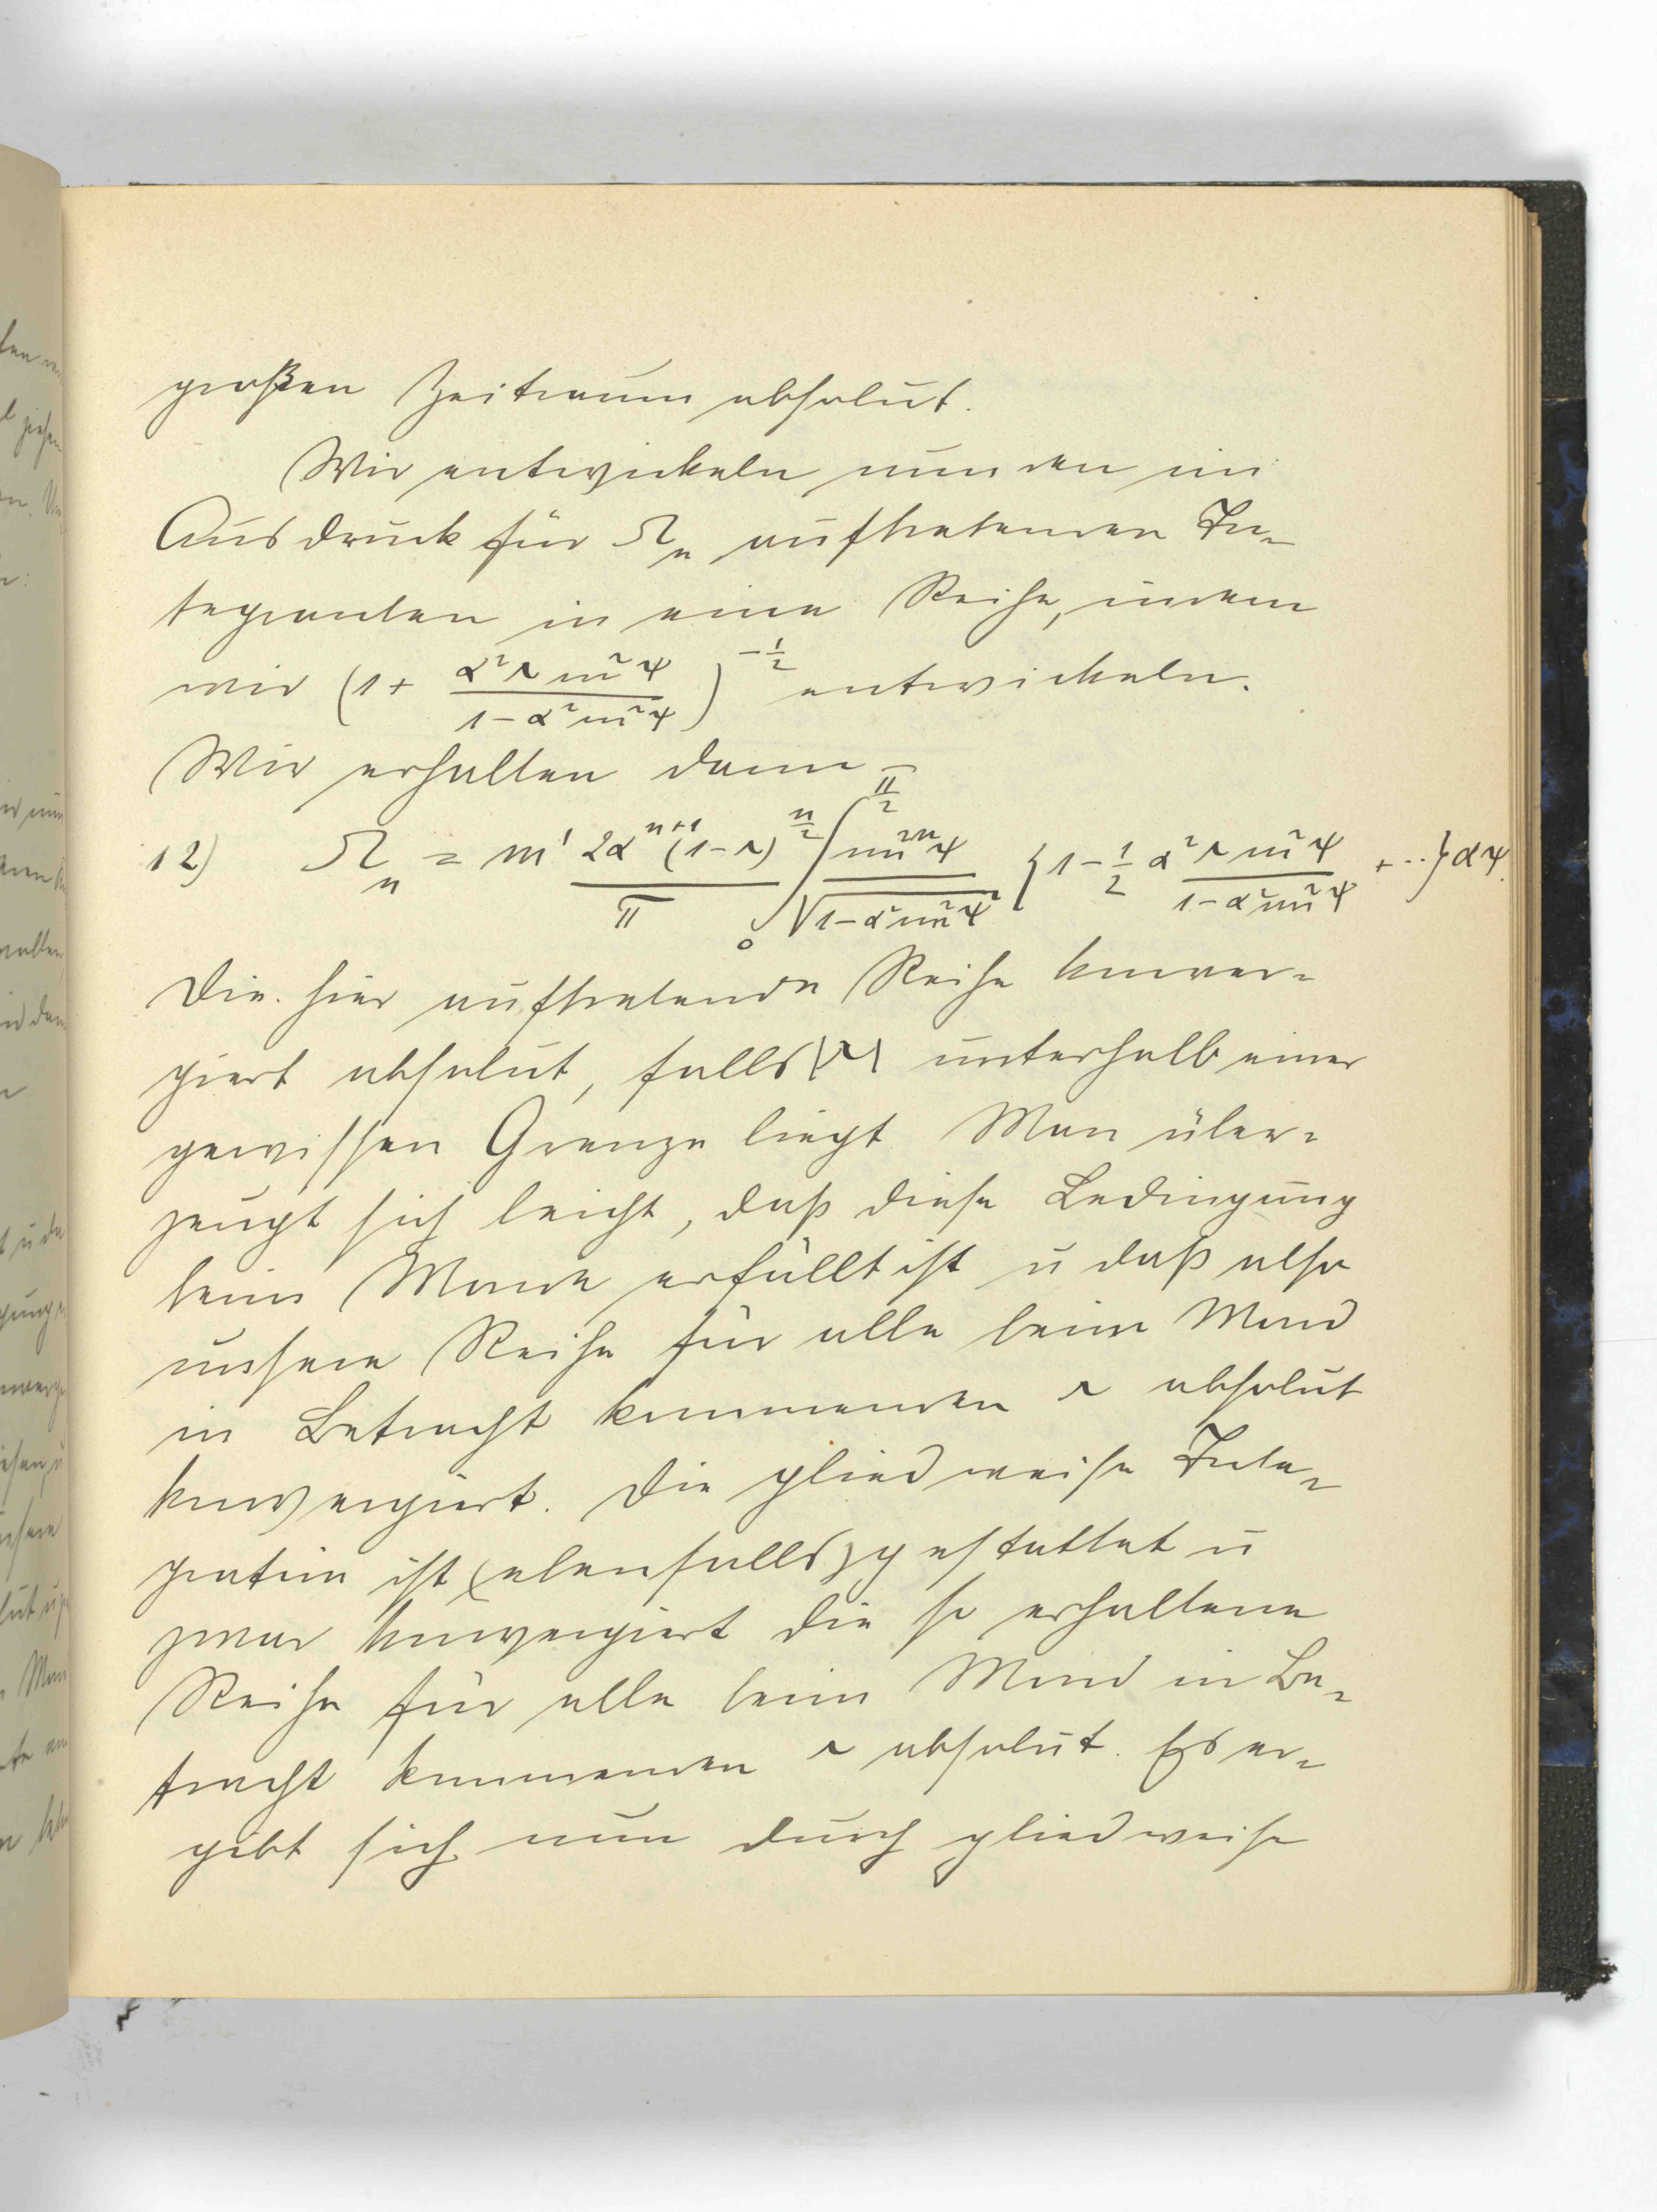 großen Zeitraum absolut.
Wir entwickeln nun den im
Ausdruck für Ω_n auftretenden In-
tegranden in eine Reihe, indem
wir (1 + α² r sin² ψ / 1 − α² sin² ψ)^(−1/2) entwickeln.
Wir erhalten dann
12) Ω_n = m' 2α^(n+1) (1−r)^(n/2) / π ∫_0^(π/2) sin^(2n) ψ / √(1 − α² sin² ψ) {1 − 1/2 α² r sin² ψ / 1 − α² sin² ψ + ..} dψ.
Die hier auftretende Reihe konver-
giert absolut, falls |r| unterhalb einer
gewissen Grenze liegt Man über-
zeugt sich leicht, daß diese Bedingung
beim Monde erfüllt ist u daß also
unsere Reihe für alle beim Mond
in Betracht kommenden r absolut
konvergiert. Die gliedweise Inte-
gration ist (ebenfalls) gestattet u
zwar konvergiert die so erhaltene
Reihe für alle beim Mond in Be-
tracht kommenden r absolut. Es er-
gibt sich nun durch gliedweise